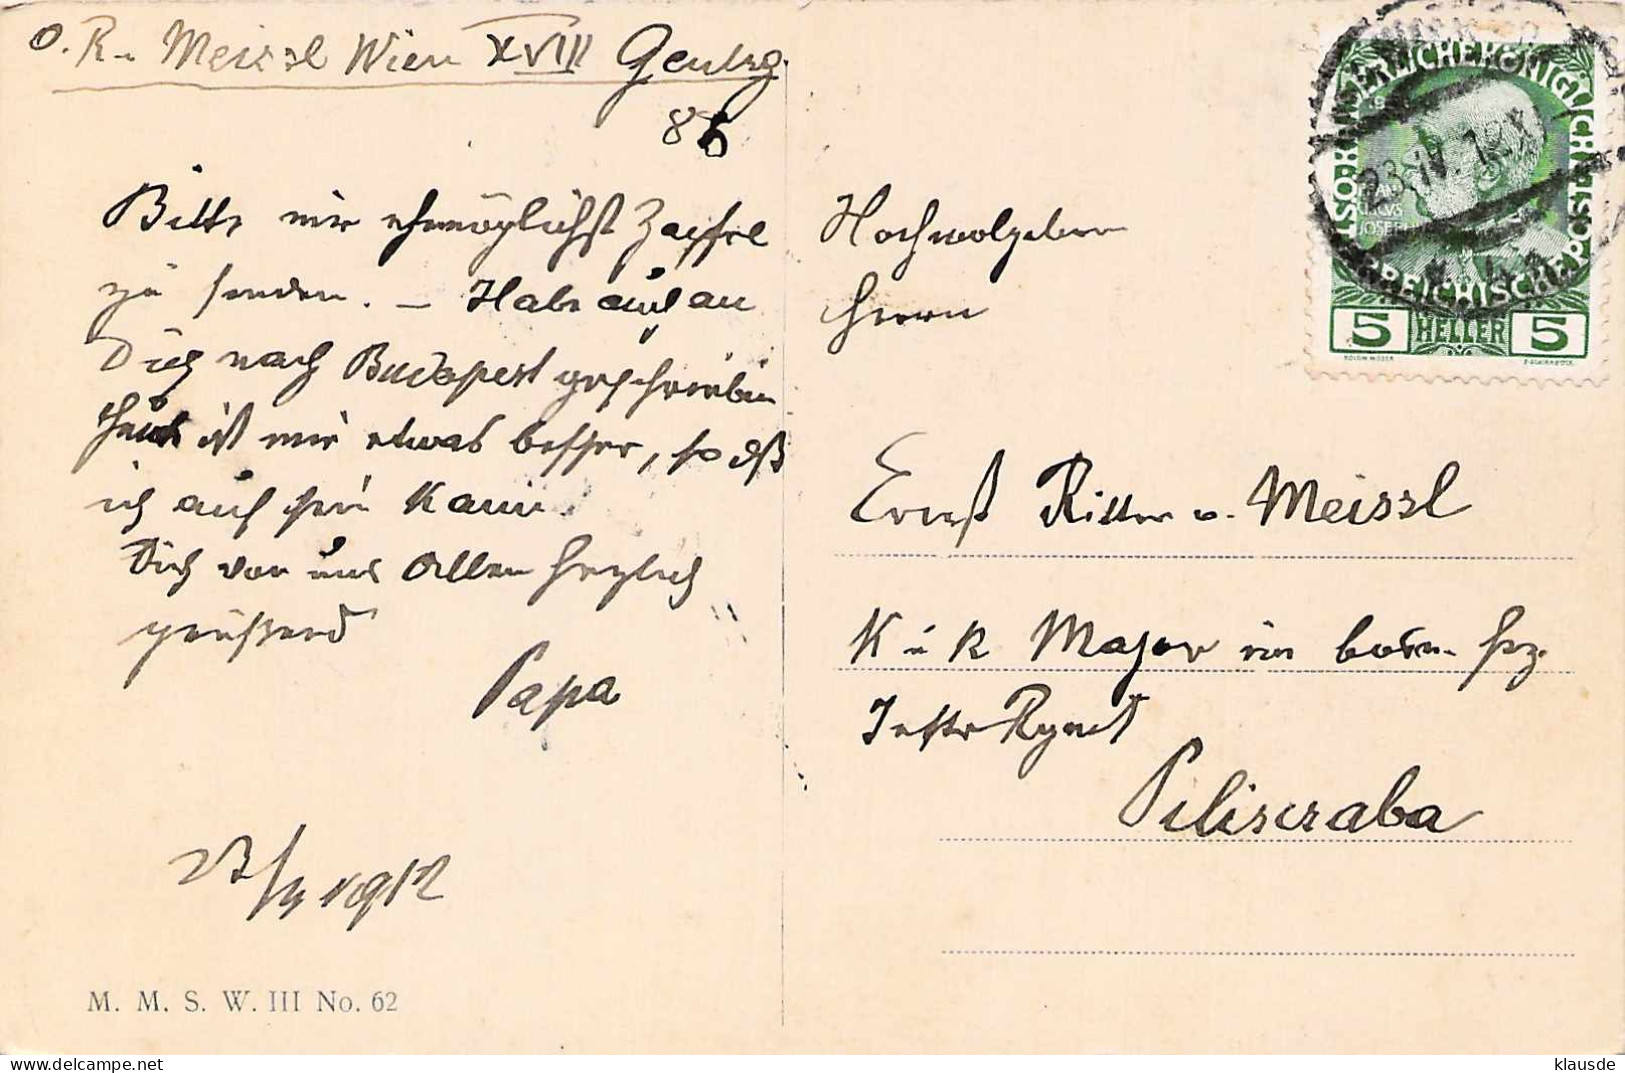 O. R. v. Meissl Wien XVIII Gentzg.
86
Bitte mir ehemöglichst Zapfel
zu senden. – Habe auch an
Dich nach Budapest geschrieben
Heute ist mir etwas besser, so dß
ich auf sein kann.
Dich von uns Allen herzlich
grüßend
Papa
23/4 1912
M. M. S. W. III No. 62
Hochwolgeboren
Herrn
Ernst Ritter v. Meissl
K u K Major im bosn. hrz.
Inftr Rgmt
Piliscsaba
KAISERLICHEKÖNIGLICHE
ÖSTERREICHISCHE POST
FRANCISCVS
JOSEPH I
23. IV. 12 X
5 HELLER 5
KOLOM. MOSER
F. SCHIRNBÖCK
klausde